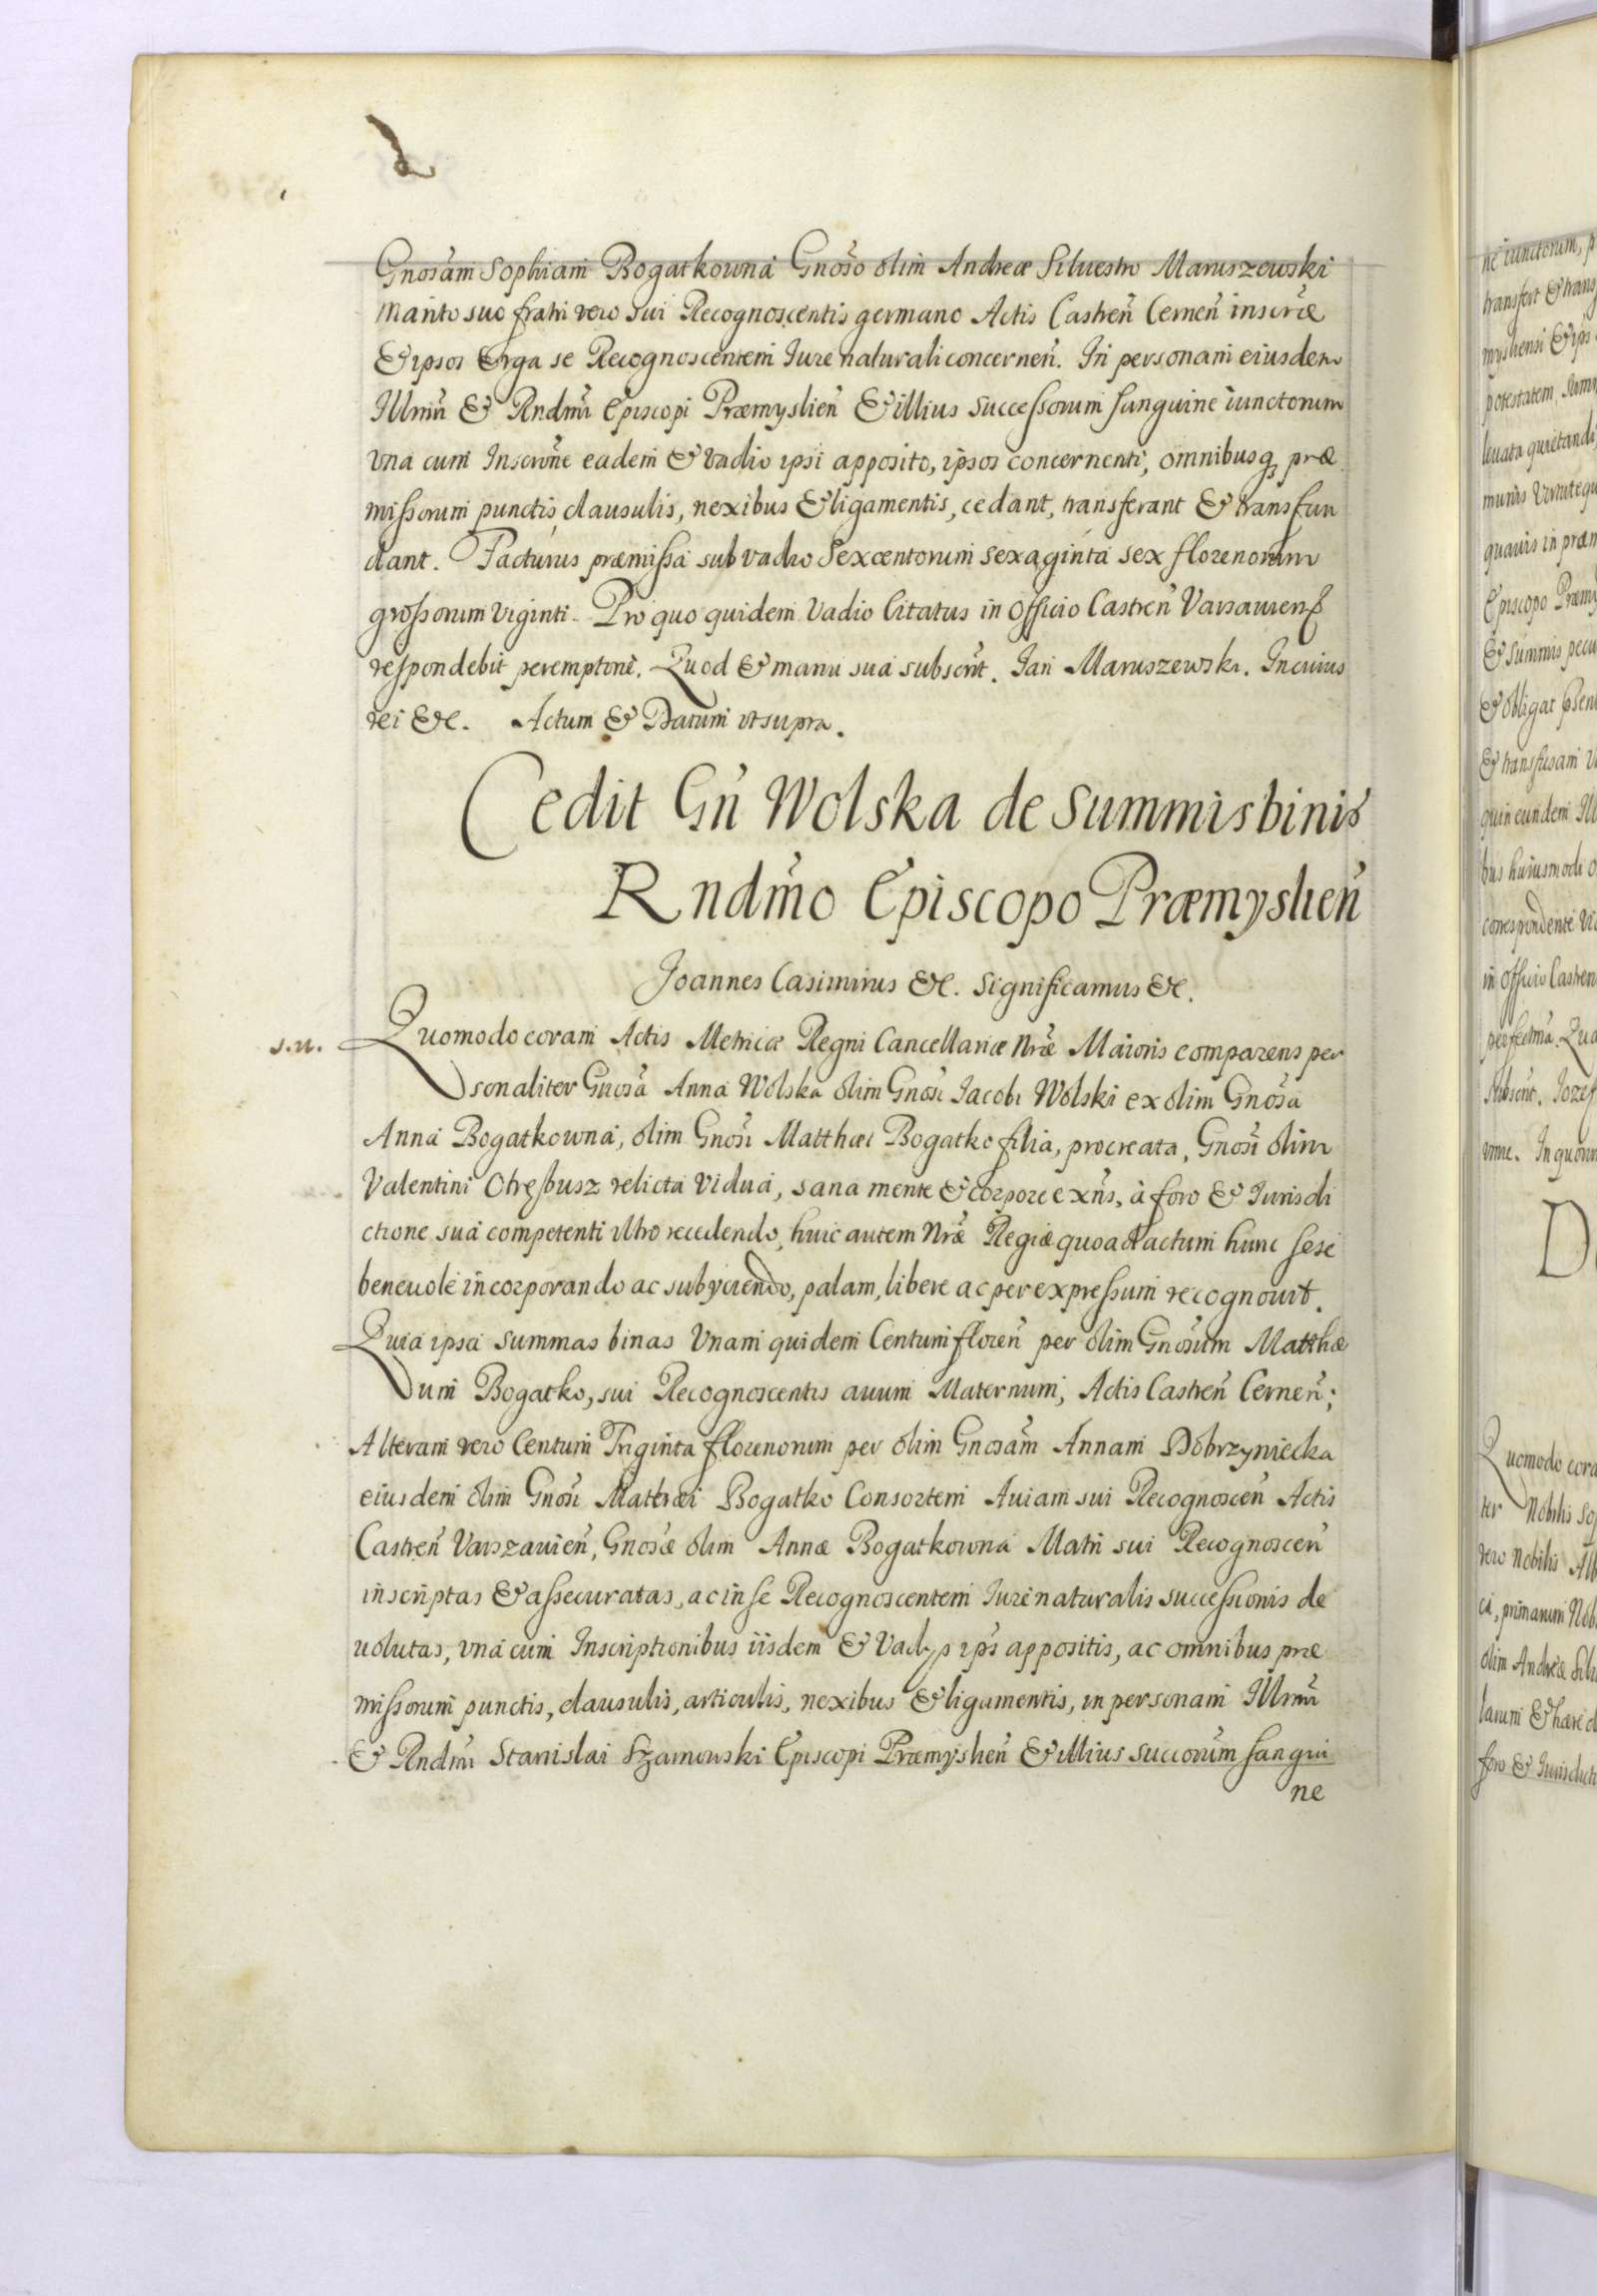 Gnosam Sophiam Bogatkowna Gnoso olim Andreæ Siluestro Maruszewski
Marito suo fratri vero sui Recognoscentis germano Actis Castreñ Cerneñ inscrñæ
& ipsos Erga se Recognoscentem Iure naturali concerneñ. In personam eiusdem
Illmi & Rndmi Episcopi Præmyslieñ & illius Successorum sanguine iunctorum
vna cum Inscrñone eadem & vadio ipsi apposito, ipsos concernenti, omnibusq præ
missorum punctis, clausulis, nexibus & ligamentis, cedant, transferant & transfun
dant. Facturus præmissa sub vadio Sexcentorum sexaginta sex florenorum
grossorum viginti. Pro quo quidem Vadio Citatus in Officio Castreñ Varsauieñs
respondebit peremptorie. Quod & manu sua subscrit. Jan Maruszewski. In cuius
rei &c. Actum & Datum vt supra.
Cedit Gñ Wolska de Summis binis
Rndmo Episcopo Præmyslieñ
Joannes Casimirus &c. Significamus &c.
s.u. Quomodo coram Actis Metricæ Regni Cancellariæ Nræ Maioris comparens per
sonaliter Gnosa Anna Wolska olim Gnosi Jacobi Wolski ex olim Gnosa
Anna Bogatkowna, olim Gnosi Matthæi Bogatko filia, procreata, Gnosi olim
Valentini Otrębusz relicta vidua, sana mente & corpore exñs, à foro & Jurisdi
ctione sua competenti vltro recedendo, huic autem Nræ Regiæ quoad actum hunc sese
beneuole incorporando ac subyciendo, palam, libere ac per expressum recognouit.
Quia ipsa summas binas Vnam quidem Centum floreñ per olim Gnosum Matthæ
um Bogatko, sui Recognoscentis auum Maternum, Actis Castreñ Cerneñ;
Alteram vero Centum Triginta florenorum per olim Gnosam Annam Dobrzyniecka
eiusdem olim Gnosi Matthæi Bogatko Consortem Auiam sui Recognosceñ Actis
Castreñ Varszauieñ, Gnosæ olim Annæ Bogatkowna Matri sui Recognosceñ
inscriptas & assecuratas, ac in se Recognoscentem Iure naturalis successionis de
uolutas, vna cum Inscriptionibus iisdem & Vadys ips appositis, ac omnibus præ
missorum punctis, clausulis, articulis, nexibus & ligamentis, in personam Illmi
& Rndmi Stanislai Szarnowski Episcopi Præmyslieñ & illius succorum sangui
ne